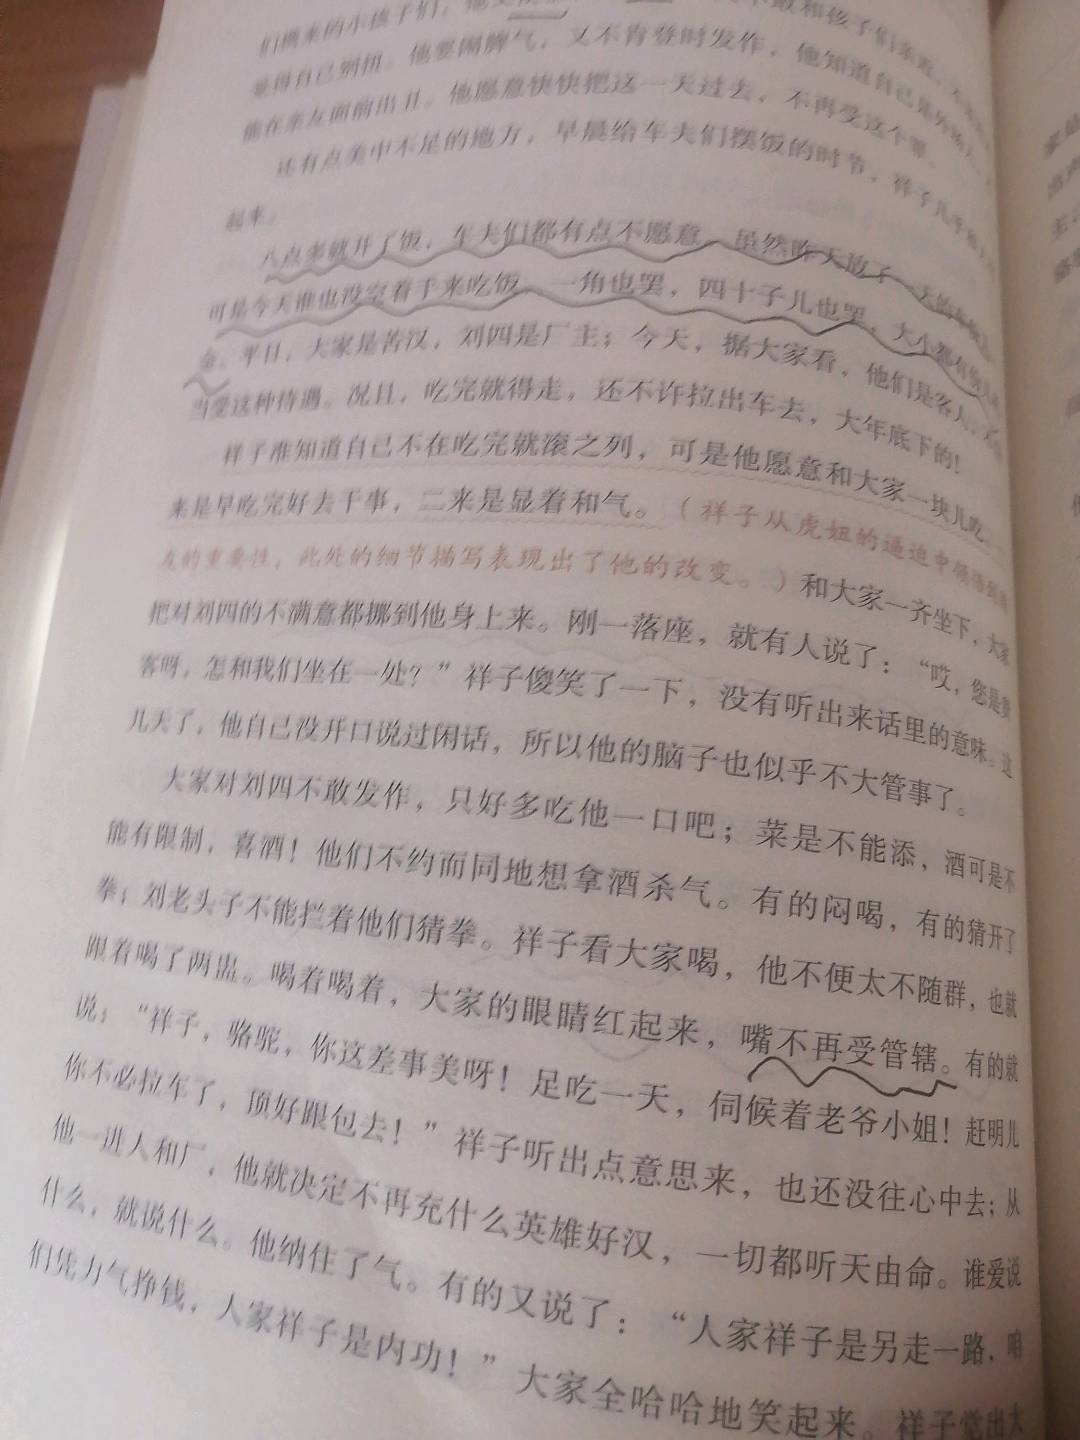 们携来的小孩子们，他又
不敢和孩子们亲近，不
觉得自己别扭。他要闹脾气，又不肯登时发作，他知道自己是外场人，不
能在亲友面前出丑。他愿意快快把这一天过去，不再受这个罪。
还有点美中不足的地方，早晨给车夫们摆饭的时节，祥子几乎和人
起来。
八点多就开了饭，车夫们都有点不愿意。虽然昨天放了一天的车份儿，
可是今天谁也没空着手来吃饭，一角也罢，四十子儿也罢，大小都有份儿
金。平日，大家是苦汉，刘四是厂主；今天，据大家看，他们是客人，不
当受这种待遇。况且，吃完就得走，还不许拉出车去，大年底下的！
祥子准知道自己不在吃完就滚之列，可是他愿意和大家一块儿吃。
来是早吃完好去干事，二来是显着和气。（祥子从虎妞的逼迫中领悟到
友的重要性，此处的细节描写表现出了他的改变。）和大家一齐坐下，大家
把对刘四的不满意都挪到他身上来。刚一落座，就有人说了：“哎，您是贵
客呀，怎和我们坐在一处？”祥子傻笑了一下，没有听出来话里的意味。这
几天了，他自己没开口说过闲话，所以他的脑子也似乎不大管事了。
大家对刘四不敢发作，只好多吃他一口吧；菜是不能添，酒可是不
能有限制，喜酒！他们不约而同地想拿酒杀气。有的闷喝，有的猜开了
拳；刘老头子不能拦着他们猜拳。祥子看大家喝，他不便太不随群，也就
跟着喝了两盅。喝着喝着，大家的眼睛红起来，嘴不再受管辖。有的就
说：“祥子，骆驼，你这差事美呀！足吃一天，伺候着老爷小姐！赶明儿
你不必拉车了，顶好跟包去！”祥子听出点意思来，也还没往心中去；从
他一进人和厂，他就决定不再充什么英雄好汉，一切都听天由命。谁爱说
什么，就说什么。他纳住了气。有的又说了：“人家祥子是另走一路，咱
们凭力气挣钱，人家祥子是内功！”大家全哈哈地笑起来。祥子觉出大